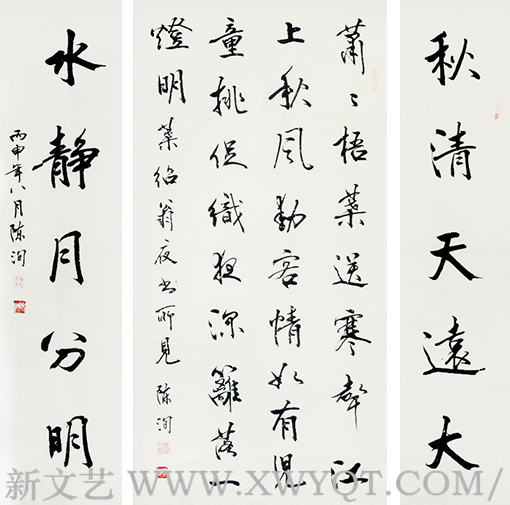 秋清天遠大
蕭〻梧葉送寒聲江
上秋風動客情知有兒
童挑促織夜深籬落一
燈明葉紹翁夜书所見 陳洵
水靜月分明
丙申年八月陳洵
新文艺 WWW.XWYQT.COM/